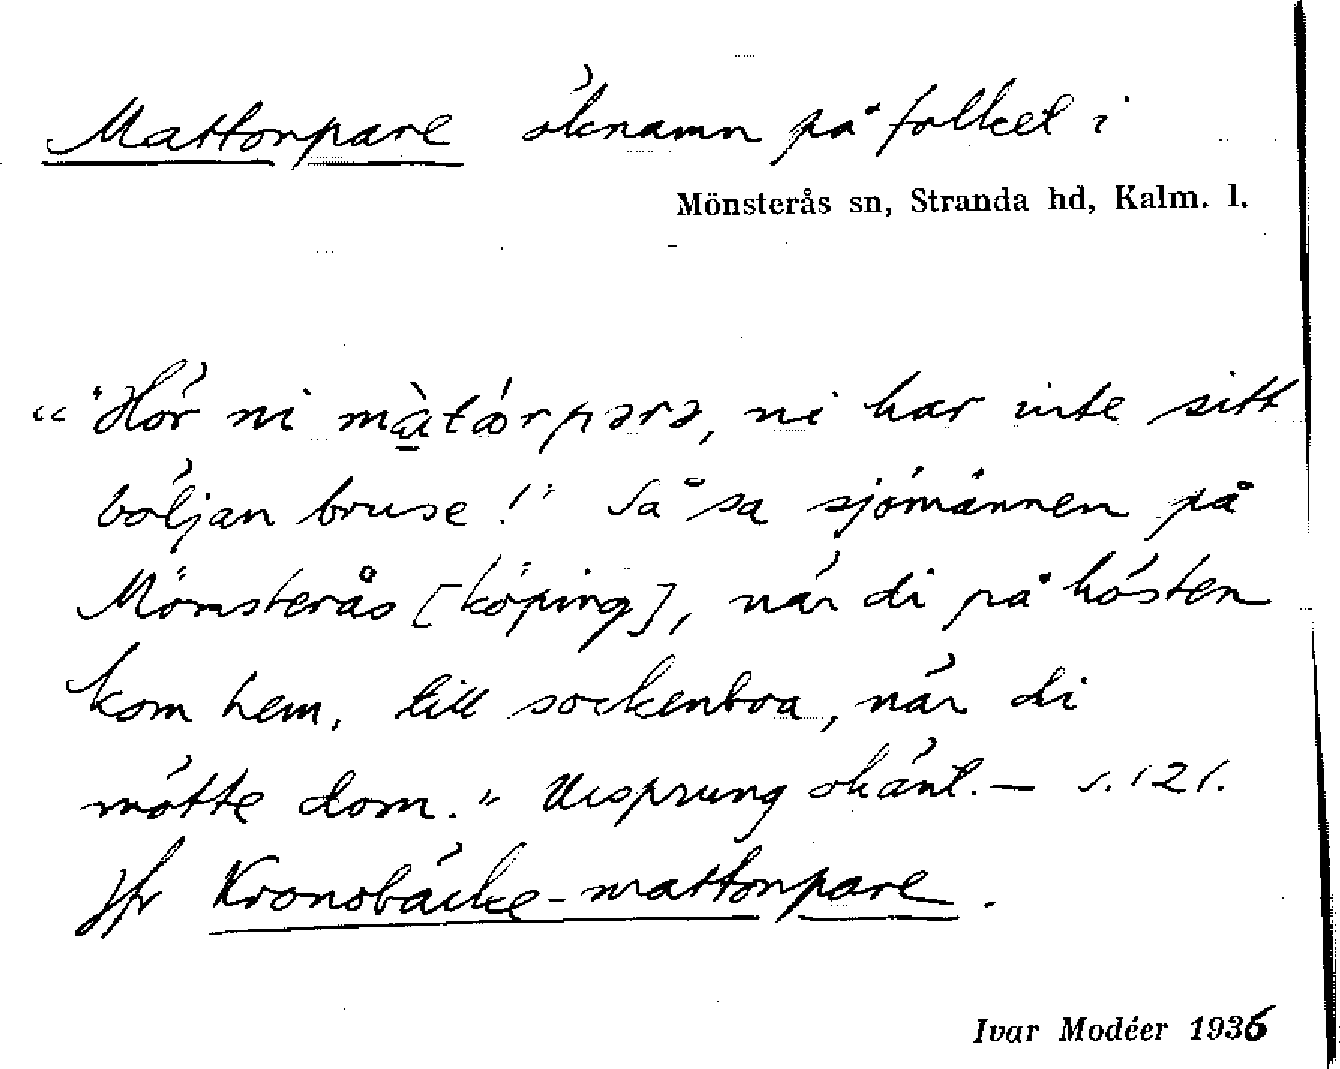 Mattorpare öknamn på folket i
Mönsterås sn, Stranda hd, Kalm. l.
"'Hör ni màtǻrpərə, ni har inte sitt
böljan bruse!' Så sa sjömännen på
Mönsterås [köping], när di på hösten
kom hem, till sockenboa, när di
mötte dom." Ursprung okänt. – s. 121.
Jfr Kronobäcke-mattorpare.
Ivar Modéer 1936